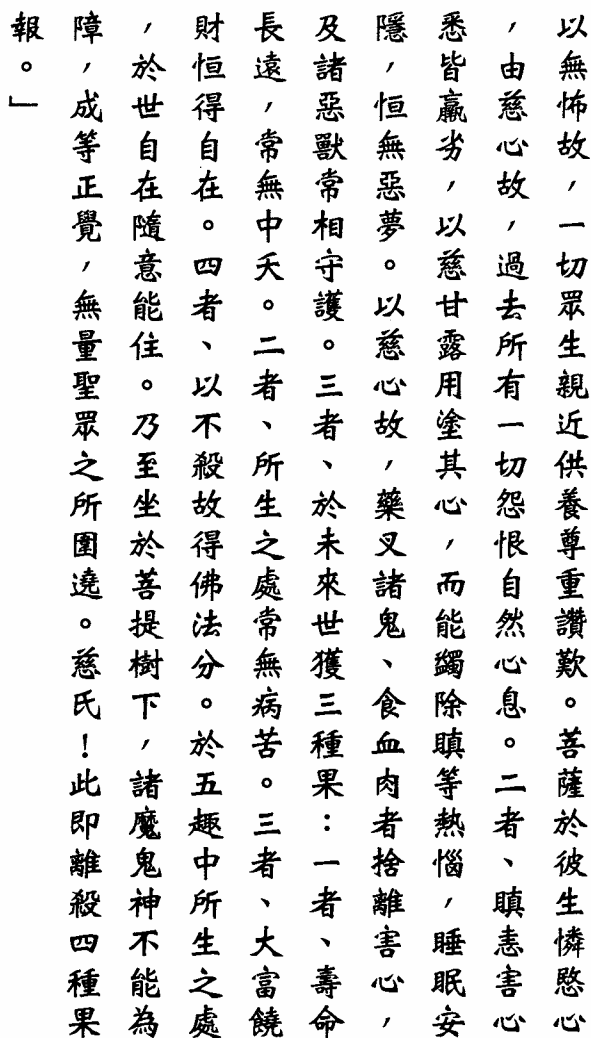 以無怖故，一切眾生親近供養尊重讚歎。菩薩於彼生憐愍心
，由慈心故，過去所有一切怨恨自然心息。二者、瞋恚害心
悉皆羸劣，以慈甘露用塗其心，而能蠲除瞋等熱惱，睡眠安
隱，恒無惡夢。以慈心故，藥叉諸鬼、食血肉者捨離害心，
及諸惡獸常相守護。三者、於未來世獲三種果：一者、壽命
長遠，常無中夭。二者、所生之處常無病苦。三者、大富饒
財恒得自在。四者、以不殺故得佛法分。於五趣中所生之處
，於世自在隨意能住。乃至坐於菩提樹下，諸魔鬼神不能為
障，成等正覺，無量聖眾之所圍遶。慈氏！此即離殺四種果
報。」